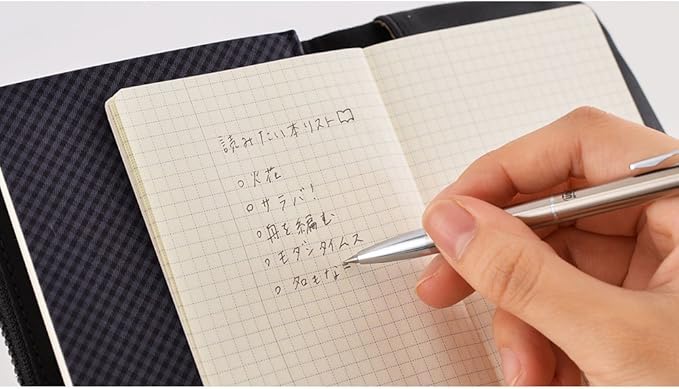 読みたい本リスト
○火花
○サラバ!
○舟を編む
○モダンタイムス
○名もなき